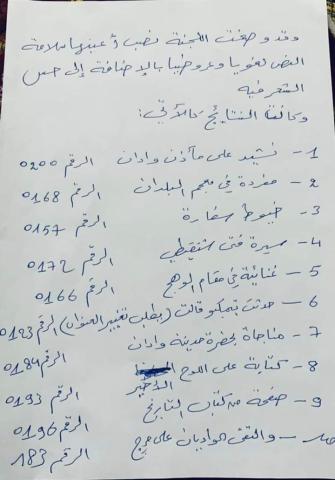 وقد وضعت اللجنة نصب أعينها سلامة
النص لغويا وعروضيا بالإضافة إلى حس
الشعر فيه
وكانت النتائج كالآتي:
1 - نشيد على مآذن وادان الرقم 0200
2 - مفردة في معجم البلدان الرقم 0168
3 - خيوط سفارة الرقم 0157
4 - سيرة فتى شنقيطي الرقم 0172
5 - غنائية في مقام الوهج الرقم 0166
6 - حدثت تمبكو قالت (يطلب تغيير العنوان) الرقم 0123
7 - مناجاة بحضرة مدينة وادان الرقم 0184
8 - كتابة على اللوح الأخير الرقم 0193
9 - صفحة من كتاب التاريخ الرقم 0196
10 - والتقى الواديان على الرقم 183